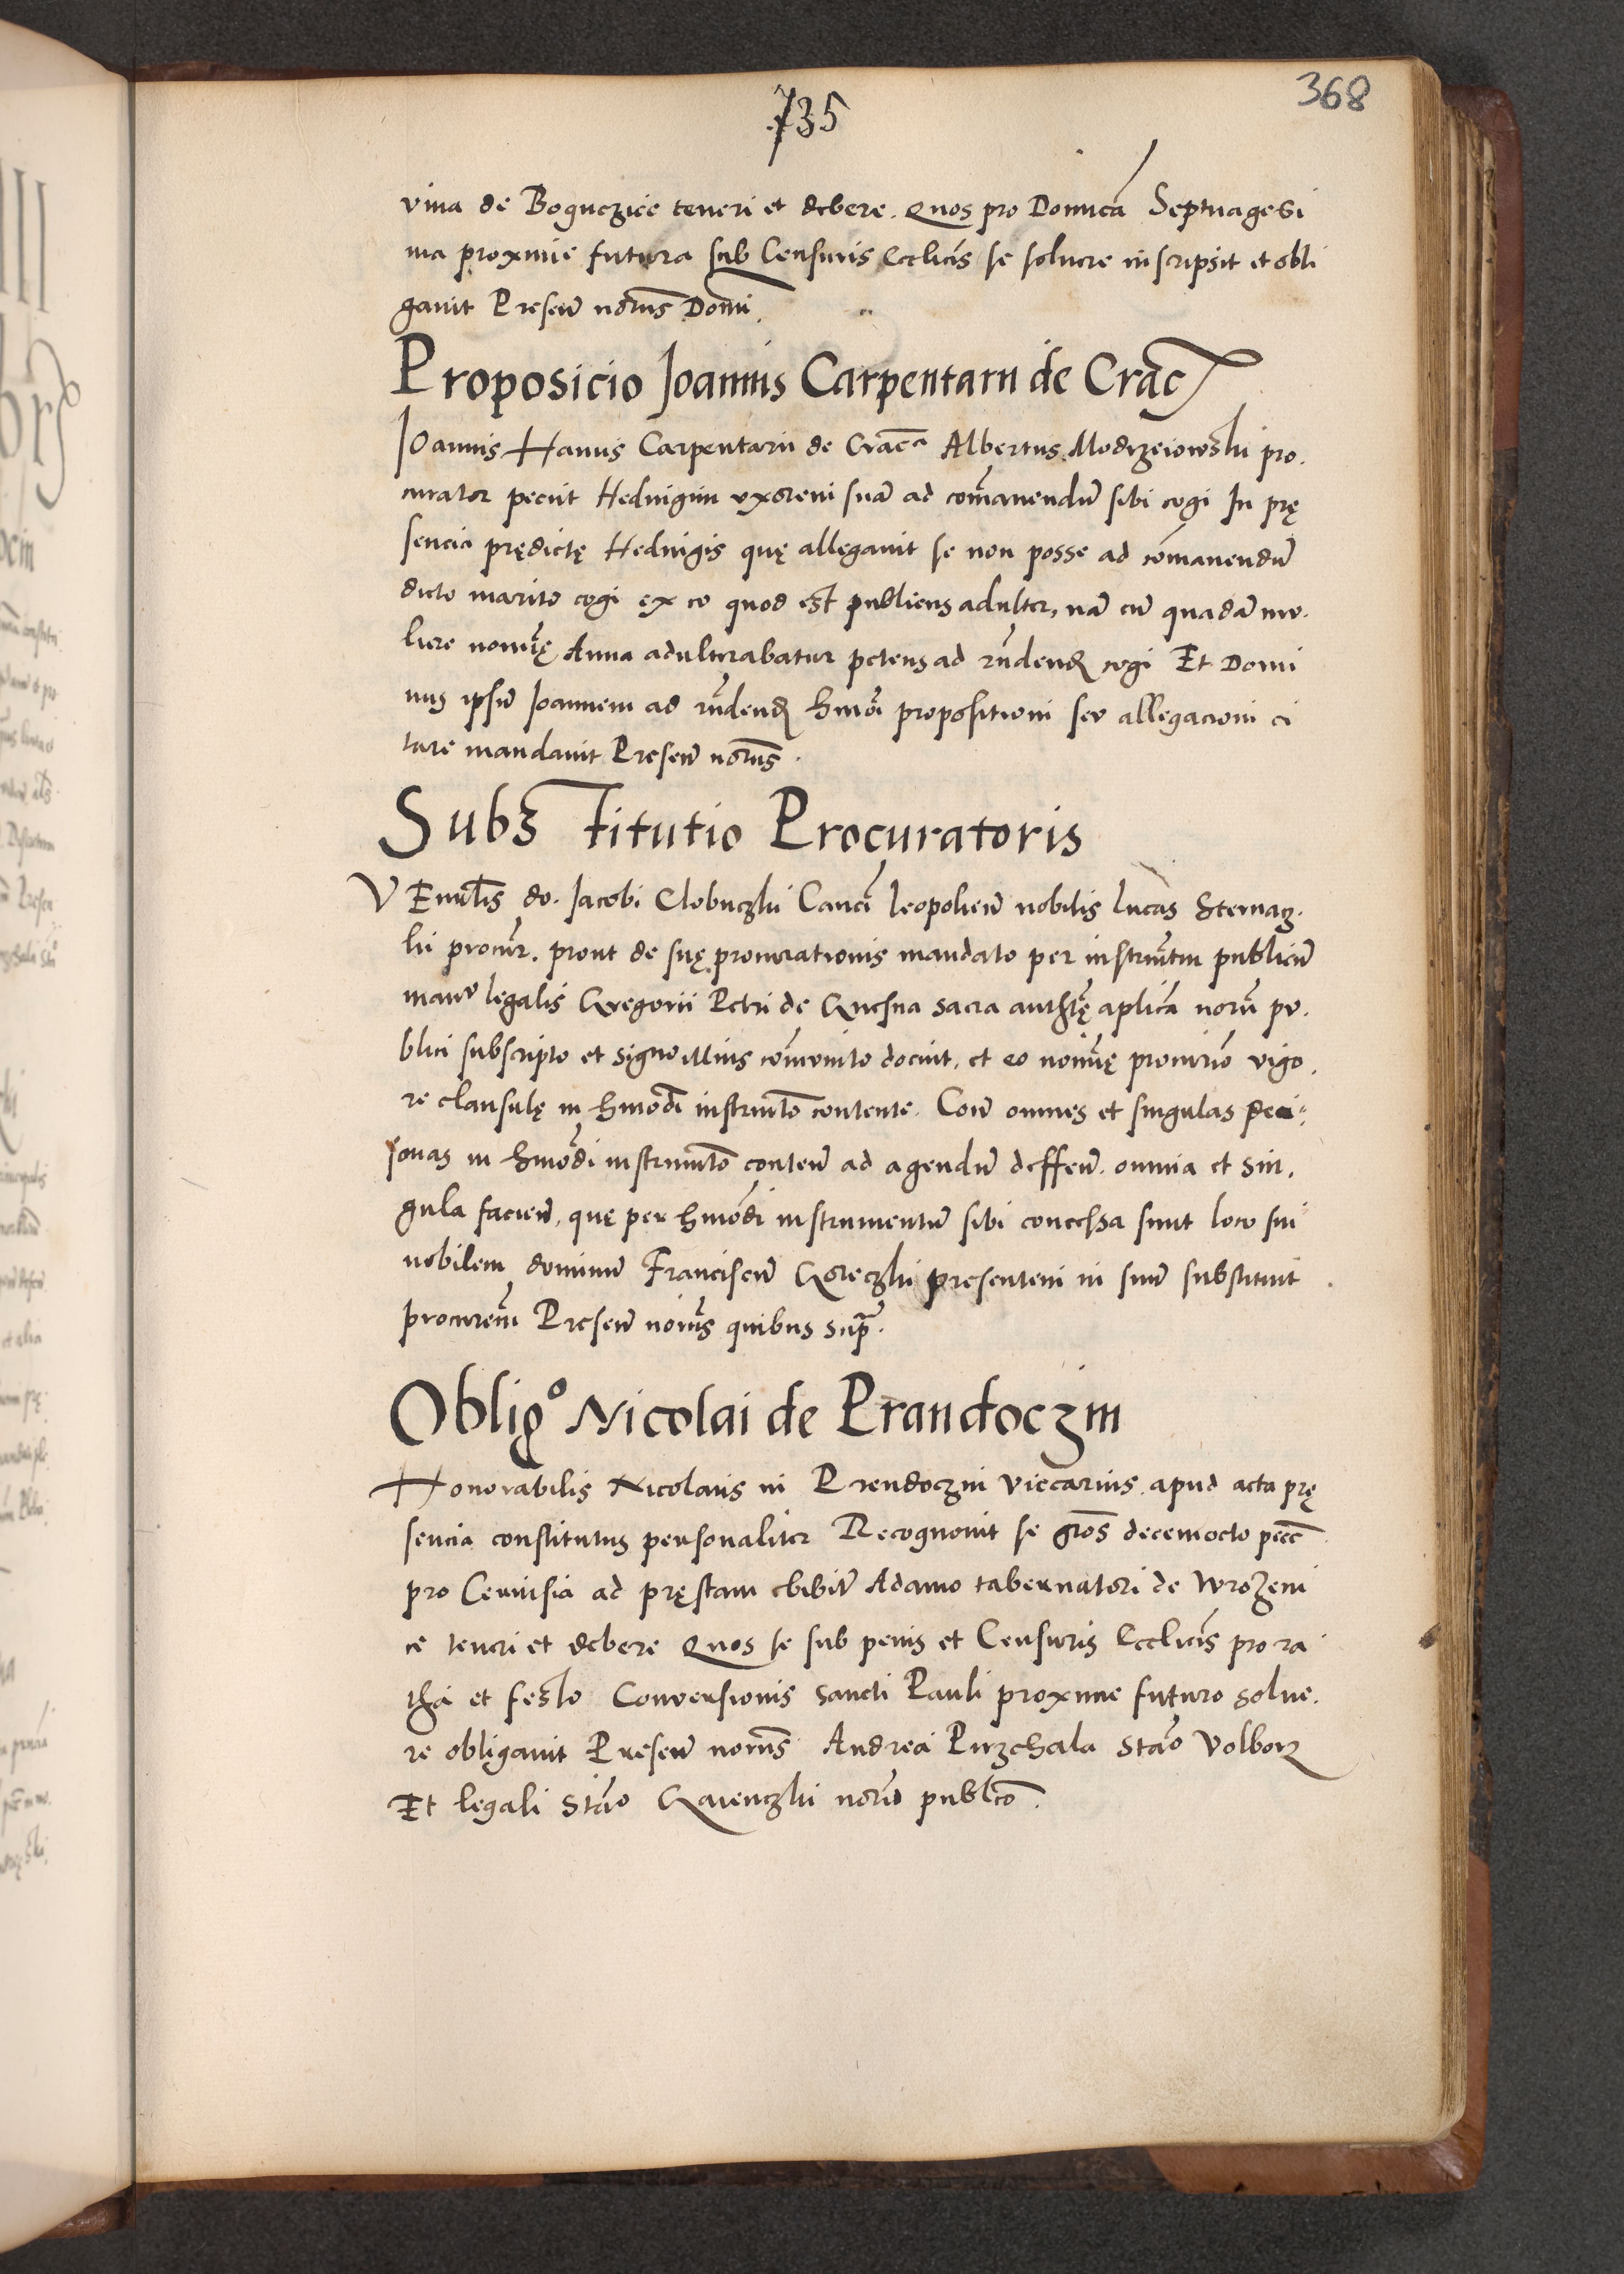 368
735
vina de Boguczicze teneri et debere. Quos pro Dominica Septuagesi
ma proxime futura sub Censuris Ecclicis se soluere inscripsit et obli
gauit Presen notus Domi
Proposicio Joannis Carpentarii de Crac
JOannis Hanus Carpentarii de Crac Albertus Modrzeiowski pro.
curator peciit Heduigim vxorem suã ad comanendũ sibi cogi In prę
sencia prędictę Heduigis quę allegauit se non posse ad comanendũ
dicto marito cogi ex eo quod est publicus adulter, nã cũ quadã mu.
liere nomię Anna adulterabatur petens ad rñdend cogi Et Domi
nus ipsũ Joannem ad rñdend hmõi propositioni seu allegacioni ci
tare mandauit Presen notus.
Subs Titutio Procuratoris
VEnerlis do. Jacobi Clobuczki Canci leopolien nobilis Lucas Sternacz.
ki procur. prout de suę procurationis mandato per instrumtm publicũ
manu legalis Gregorii Petri de Gnesna sacra authtę aplica notrii pu.
blici subscripto et signo illius comunito docuit, et eo nomię procurio vigo.
re clausulę in hmodi instrumto contente. Coram omnes et singulas per
sonas in hmodi instrumto conten ad agendũ deffen. omnia et sin.
gula facien, quę per hmodi instrumentũ sibi concessa sunt loco sui
nobilem dominum Franciscũ Goreczki presentem in suũ substituit
procurem Presen notus quibus supra.
Obligo Nicolai de Prandoczin
Honorabilis Nicolaus in Prendoczin Viccarius apud acta prę
sencia constitutus personaliter Recognouit se gros decemocto pecc
pro Ceruisia ad pręstam ebibit Adamo tabernatori de Wrozeni
ce teneri et debere Quos se sub penis et Censuris Ecclicis pro ra
tha et festo Conuersionis Sancti Pauli proxime futuro solue.
re obligauit Presen notus Andrea Przchala Stao Volborz
Et legali Stao Gaienczki notrio publco.